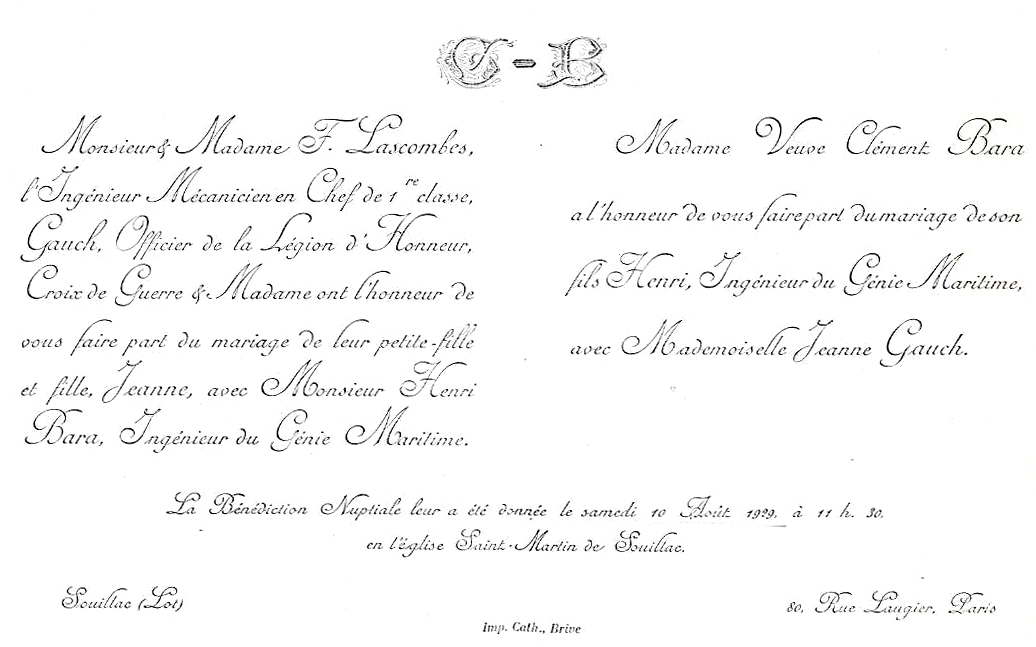 G - B
Monsieur & Madame F. Lascombes,
l'Ingénieur Mécanicien en Chef de 1re classe,
Gauch, Officier de la Légion d'Honneur,
Croix de Guerre & Madame ont l'honneur de
vous faire part du mariage de leur petite-fille
et fille, Jeanne, avec Monsieur Henri
Bara, Ingénieur du Génie Maritime.
Madame Veuve Clément Bara
a l'honneur de vous faire part du mariage de son
fils Henri, Ingénieur du Génie Maritime,
avec Mademoiselle Jeanne Gauch.
La Bénédiction Nuptiale leur a été donnée le samedi 10 Août 1929. à 11 h. 30.
en l'église Saint-Martin de Souillac.
Souillac (Lot)
80, Rue Laugier. Paris
Imp. Cath., Brive